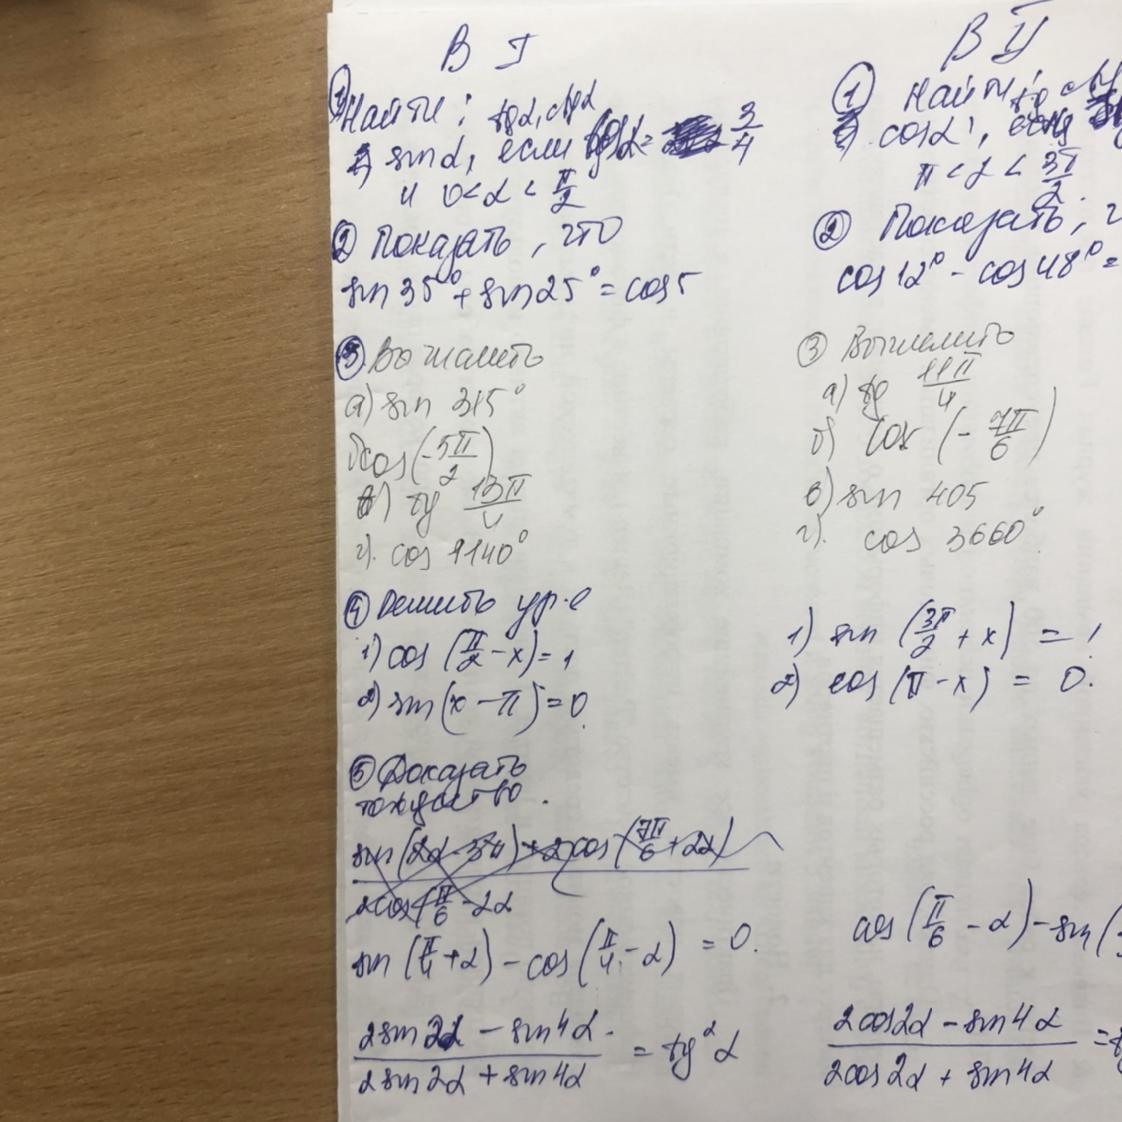 В I
① Найти: tgα, ctgα
sinα, если cosα = 3/4
и 0 < α < π/2
② Показать, что
sin 35° + sin 25° = cos 5
③ Вычислить
а) sin 315°
б) cos(-5π/2)
в) tg 13π/4
г). cos 1140°
④ Решить ур-е
1) cos (π/2 - x) = 1
2) sin (x - π) = 0.
⑤ Доказать
тождество.
sin (π/4 + α) - cos (π/4 - α) = 0.
2sin2α - sin4α
2sin2α + sin4α = tg²α
В II
① Найти: tg
cosα, если
π < α < 3π/2
② Показать,
cos 12° - cos 48° =
③ Вычислить
а) tg 11π/4
б) cos (- 7π/6)
в) sin 405
г). cos 3660°
1) sin (3π/2 + x) = 1
2) cos (π - x) = 0.
cos (π/6 - α) - sin (
2cos2α - sin4α
2cos2α + sin4α =